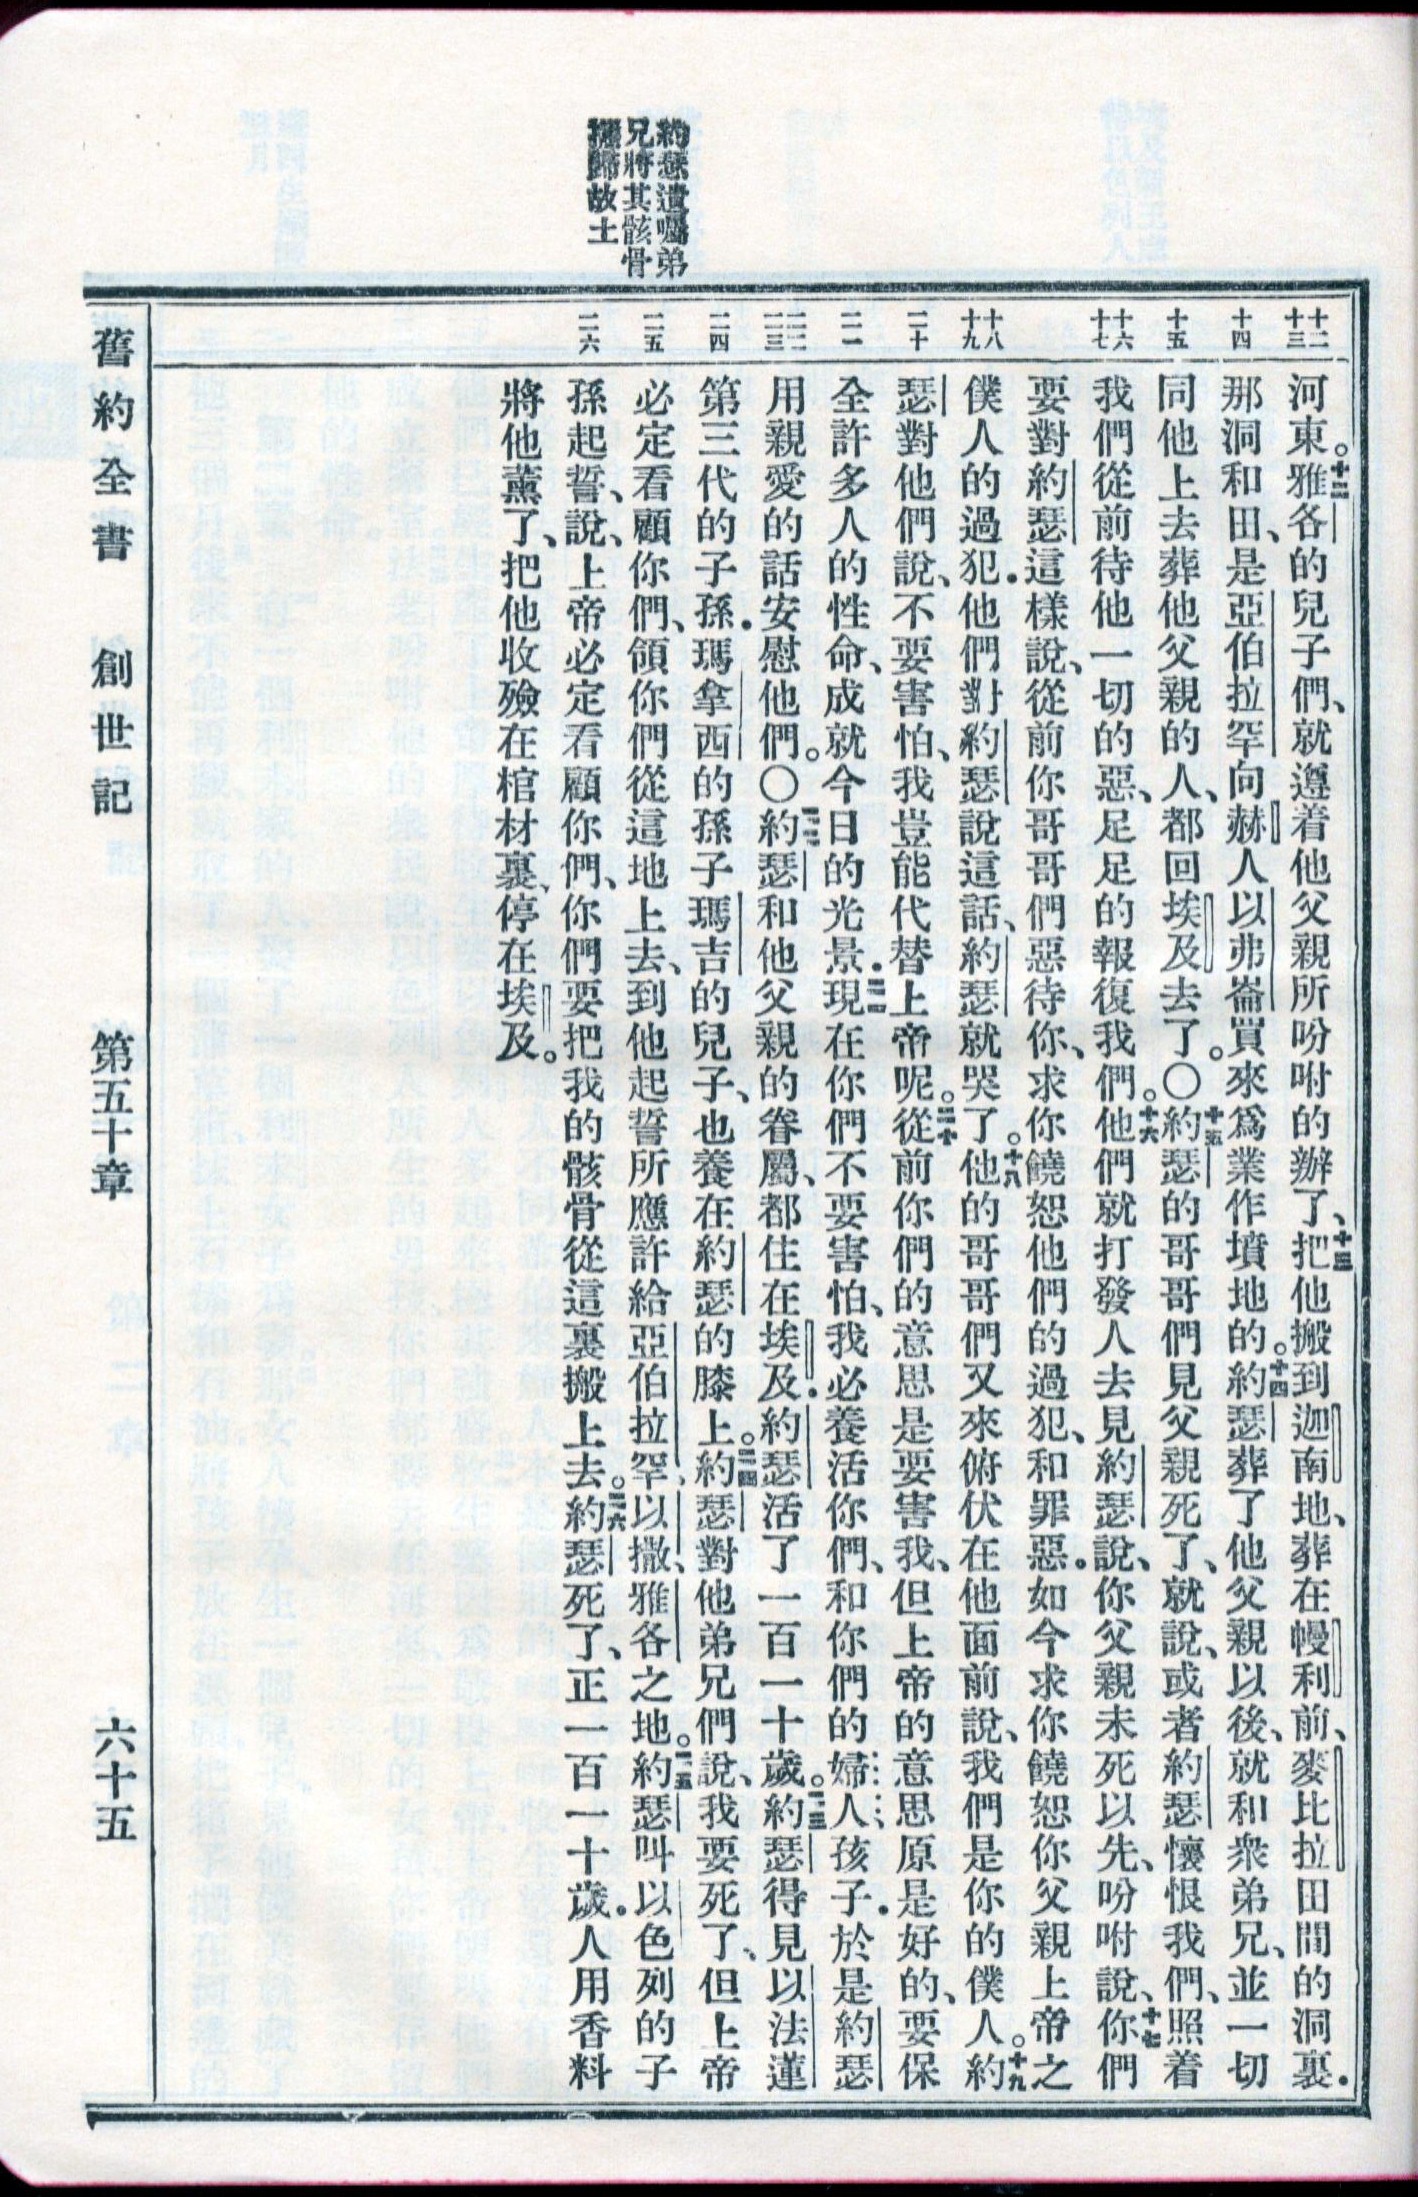 約瑟遺囑弟
兄將其骸骨
搬歸故土
十二
十三
十四
十五
十六
十七
十八
十九
二十
二一
二二
二三
二四
二五
二六
河東。十二雅各的兒子們、就遵着他父親所吩咐的辦了、十三把他搬到迦南地、葬在幔利前、麥比拉田間的洞裏．
那洞和田、是亞伯拉罕向赫人以弗崙買來爲業作墳地的。十四約瑟葬了他父親以後、就和衆弟兄、並一切
同他上去葬他父親的人、都回埃及去了。〇十五約瑟的哥哥們見父親死了、就說、或者約瑟懷恨我們、照着
我們從前待他一切的惡、足足的報復我們。十六他們就打發人去見約瑟說、你父親未死以先、吩咐說、十七你們
要對約瑟這樣說、從前你哥哥們惡待你、求你饒恕他們的過犯、和罪惡．如今求你饒恕你父親上帝之
僕人的過犯．他們對約瑟說這話、約瑟就哭了。十八他的哥哥們又來俯伏在他面前說、我們是你的僕人。十九約
瑟對他們說、不要害怕、我豈能代替上帝呢。二十從前你們的意思是要害我、但上帝的意思原是好的、要保
全許多人的性命、成就今日的光景．二一現在你們不要害怕、我必養活你們、和你們的婦人孩子．於是約瑟
用親愛的話安慰他們。〇二二約瑟和他父親的眷屬、都住在埃及．約瑟活了一百一十歲。二三約瑟得見以法蓮
第三代的子孫．瑪拿西的孫子瑪吉的兒子、也養在約瑟的膝上。二四約瑟對他弟兄們說、我要死了、但上帝
必定看顧你們、領你們從這地上去、到他起誓所應許給亞伯拉罕以撒、雅各之地。二五約瑟叫以色列的子
孫起誓、說、上帝必定看顧你們、你們要把我的骸骨從這裏搬上去。二六約瑟死了、正一百一十歲．人用香料
將他薰了、把他收殮在棺材裏、停在埃及。
舊約全書 創世記 第五十章 六十五